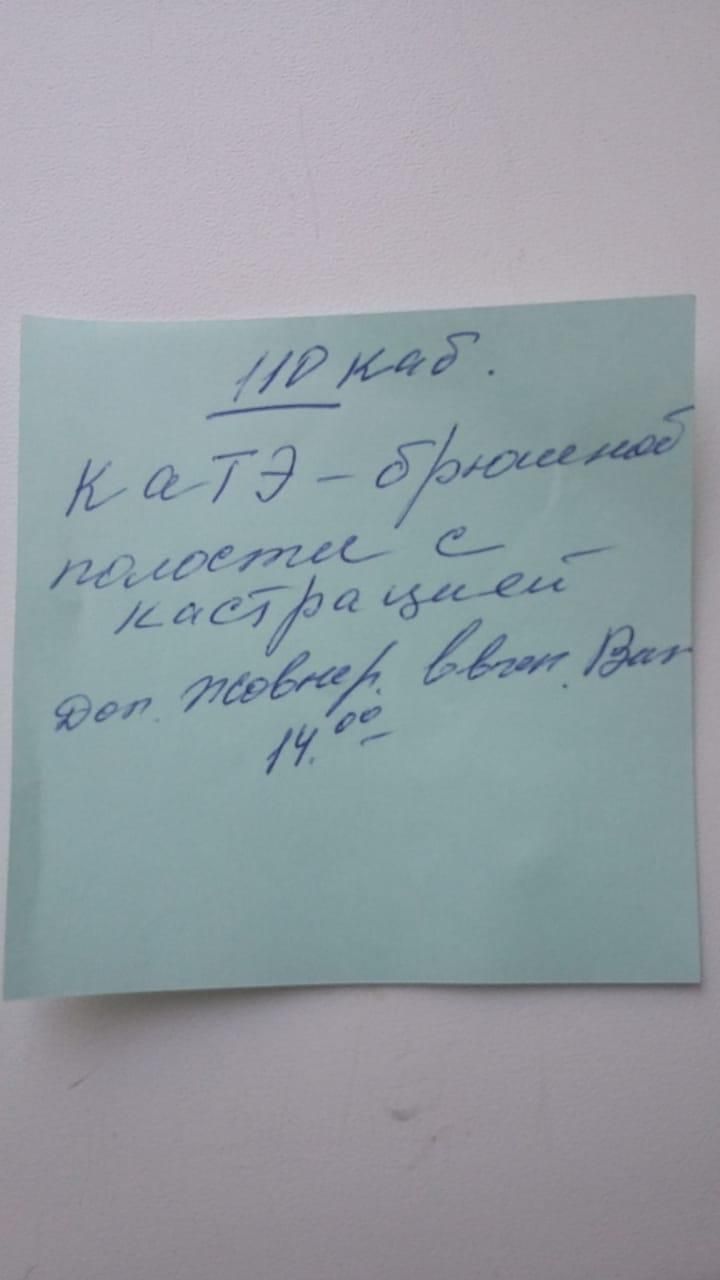 110 каб.
КаТЭ - брюшной
полости с
кастрацией
Доп. Жовнер.
14.00